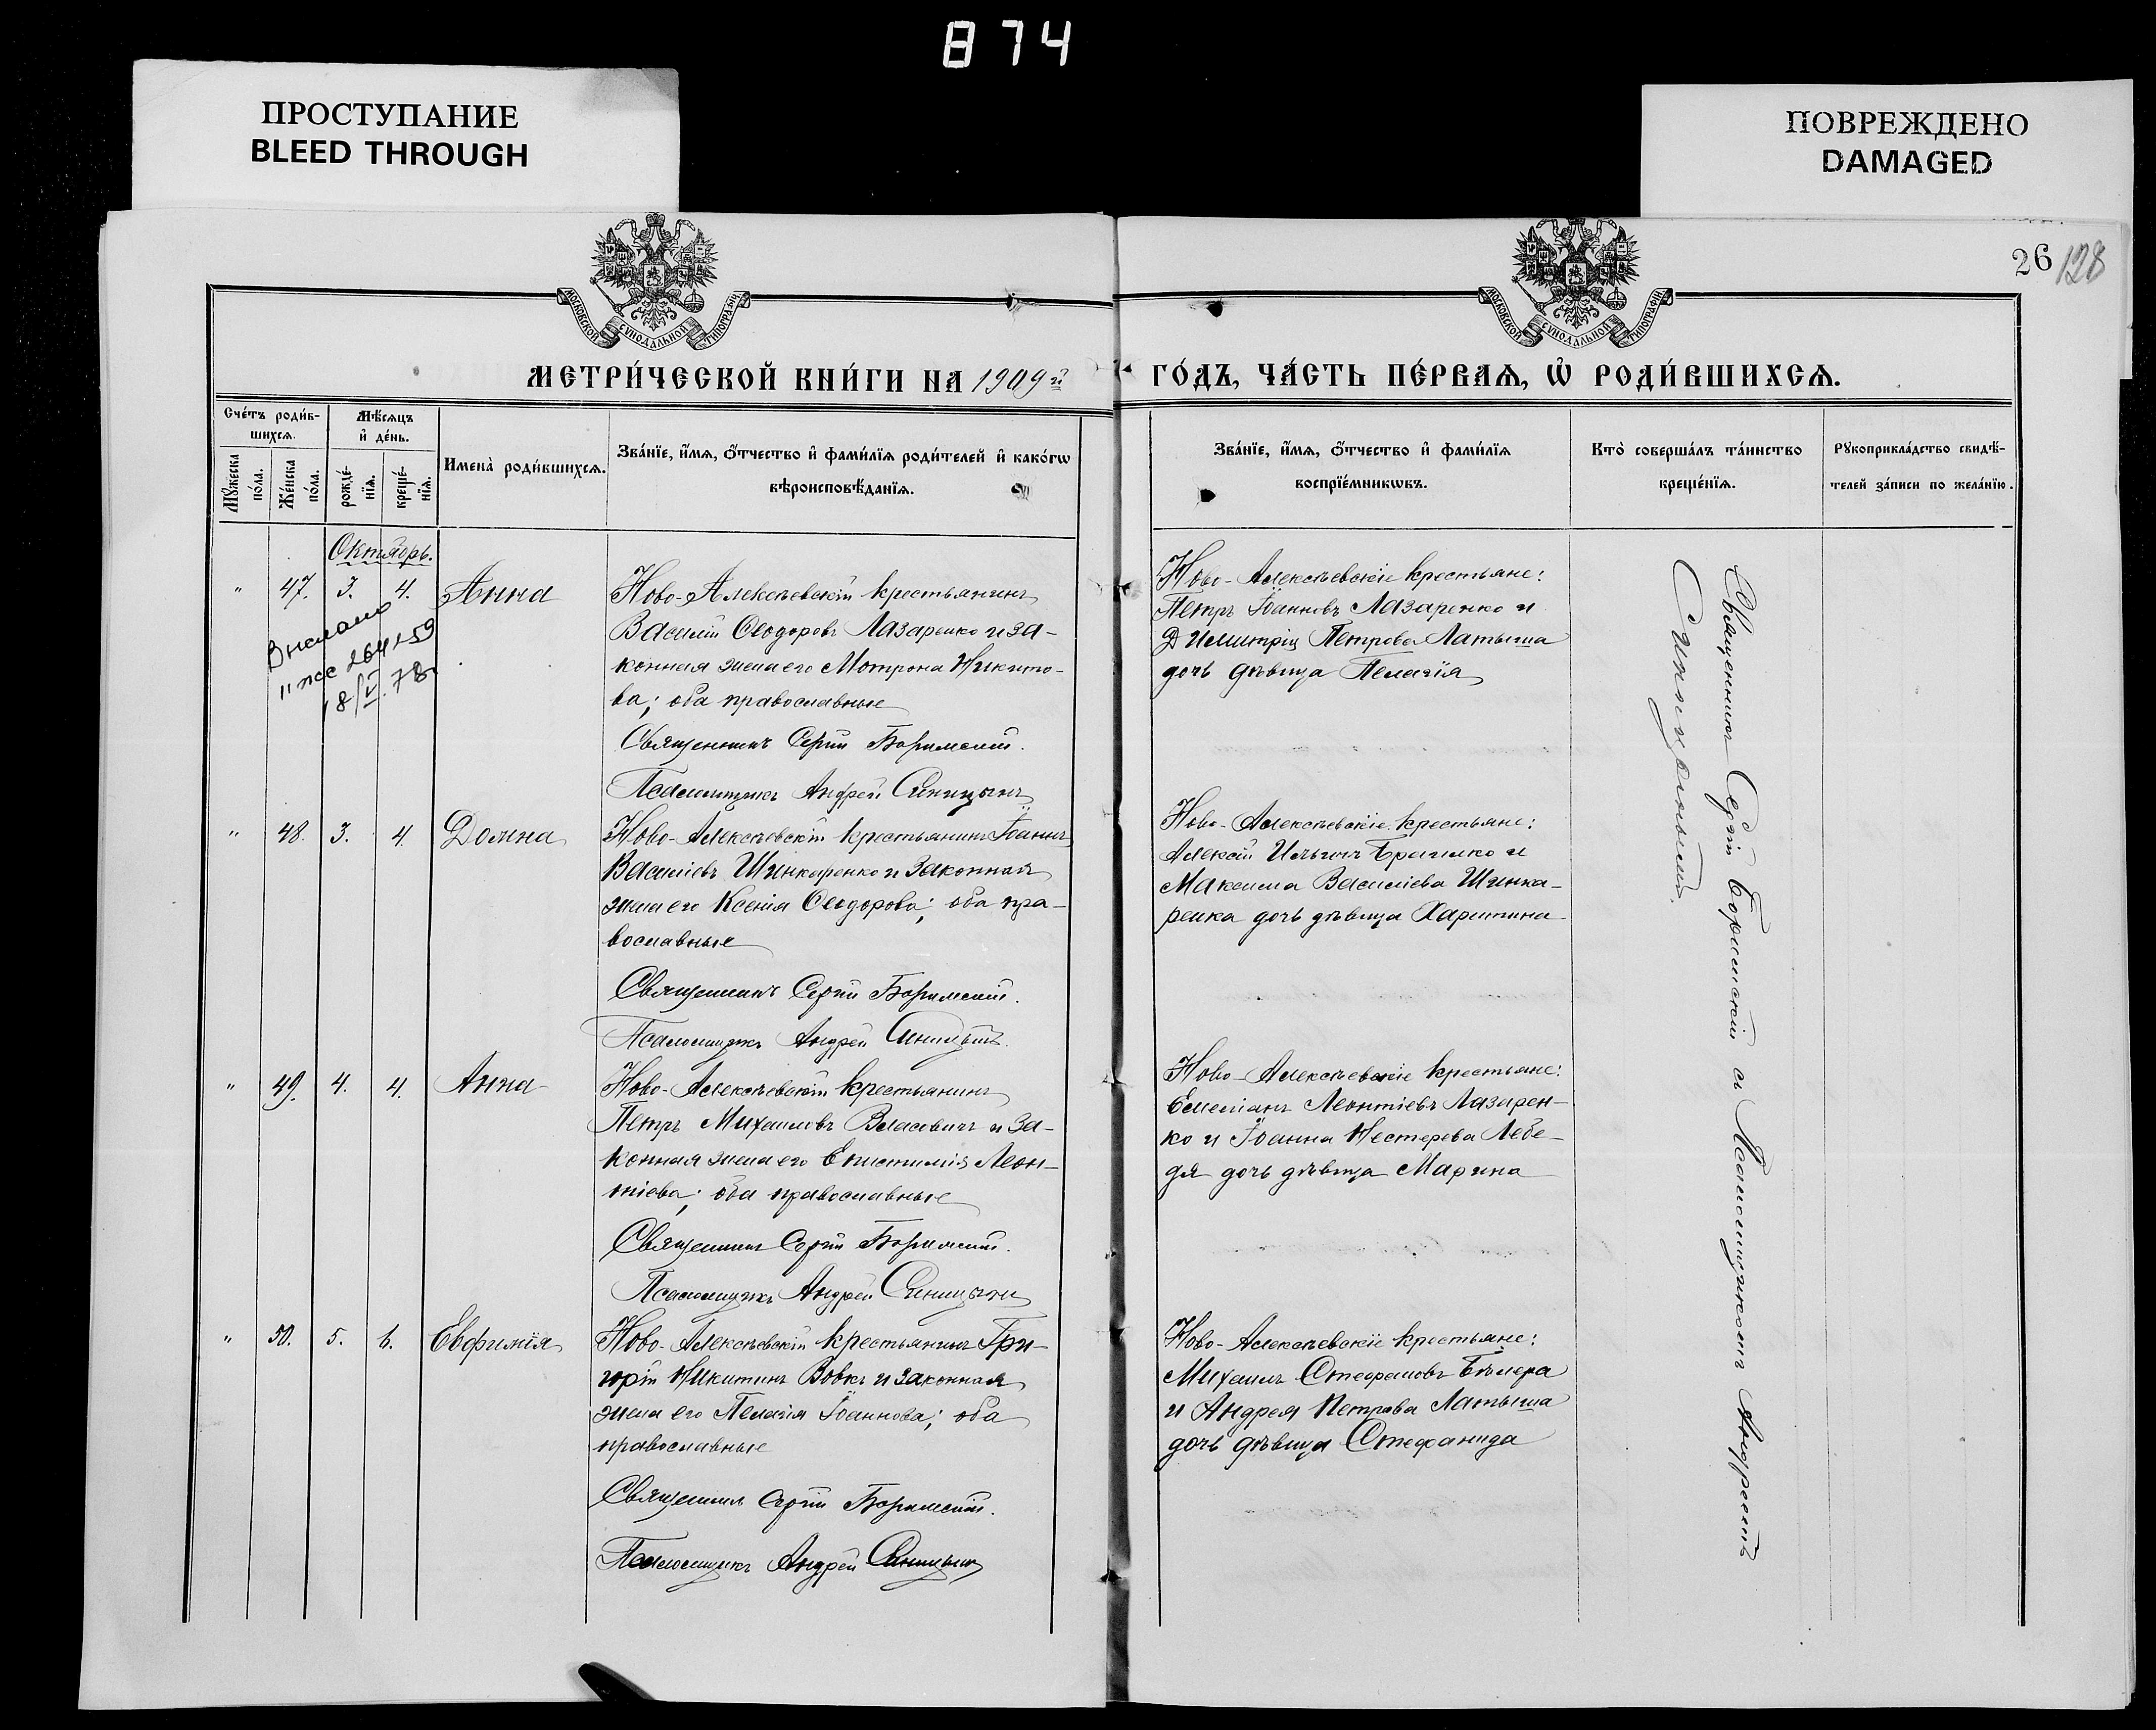 874
ПРОСТУПАНИЕ
BLEED THROUGH
ПОВРЕЖДЕНО
DAMAGED
МОСКОВСКОЙ СѴНОДАЛЬНОЙ ТИПОГРАФІИ
МОСКОВСКОЙ СѴНОДАЛЬНОЙ ТИПОГРАФІИ
26 128
МЕТРИ́ЧЕСКОЙ КНИ́ГИ НА 1909й ГО́ДЪ, ЧА́СТЬ ПЕ́РВАЯ, Ѡ҆ РОДИ́ВШИХСЯ.
Сче́тъ роди́в-
шихся.
Мѣ́сяцъ
и҆ де́нь.
Мꙋжеска
по́ла.
Же́нска
по́ла.
рожде́-
нїя.
креще́-
нїя.
Имена̀ роди́вшихся.
Зва́нїе, и҆́мя, ѻ҆́тчество и҆ фами́лїя роди́телей и҆ како́гѡ
вѣроисповѣ́данїя.
Зва́нїе, и҆́мя, ѻ҆́тчество и҆ фами́лїя
воспрїе́мникѡвъ.
Кто̀ соверша́лъ та́инство
креще́нїя.
Рꙋкоприкла́дство свидѣ́-
телей за́писи по жела́нїю.
Октябрь.
" 47. 3. 4. Анна
Выслано
18/V.78г
Ново-Алексѣевскій крестьянинъ
Василій Ѳеодоровъ Лазаренко и за-
конная жена его Мотрона Никито-
ва; оба православные
Священникъ Сергій Боримскій.
Псаломщикъ Андрей Синицынъ
Ново-Алексѣевскіе крестьяне:
Петръ Іоанновъ Лазаренко и
Димитрія Петрова Латыша
дочь дѣвица Пелагія
" 48. 3. 4. Домна
Ново-Алексѣевскій крестьянинъ Іоаннъ
Василіевъ Шинкаренко и законная
жена его Ксенія Ѳеодорова; оба пра-
вославные
Священникъ Сергій Боримскій.
Псаломщикъ Андрей Синицынъ.
Ново-Алексѣевскіе крестьяне:
Алексій Ильинъ
Максима Василіева Шинка-
ренка дочь дѣвица Харитина
" 49. 4. 4. Анна
Ново-Алексѣевскій крестьянинъ
Петръ Михаиловъ Власовичъ и за-
конная жена его Епистимія Леон-
тіева; оба православные
Священникъ Сергій Боримскій.
Псаломщикъ Андрей Синицынъ
Ново-Алексѣевскіе крестьяне:
Емеліанъ Леонтіевъ Лазарен-
ко и Іоанна Нестерова Лебе-
дя дочь дѣвица Марина
" 50. 5. 6. Евфимія
Ново-Алексѣевскій крестьянинъ Гри-
горій Никитинъ Вовкъ и законная
жена его Пелагія Іоаннова; оба
православные
Священникъ Сергій Боримскій.
Псаломщикъ Андрей Синицынъ
Ново-Алексѣевскіе крестьяне:
Михаилъ Стефановъ
и Андрея Петрова Латыша
дочь дѣвица Стефанида
Священникъ Сергій Боримскій съ Псаломщикомъ Андреемъ
Синицынымъ.